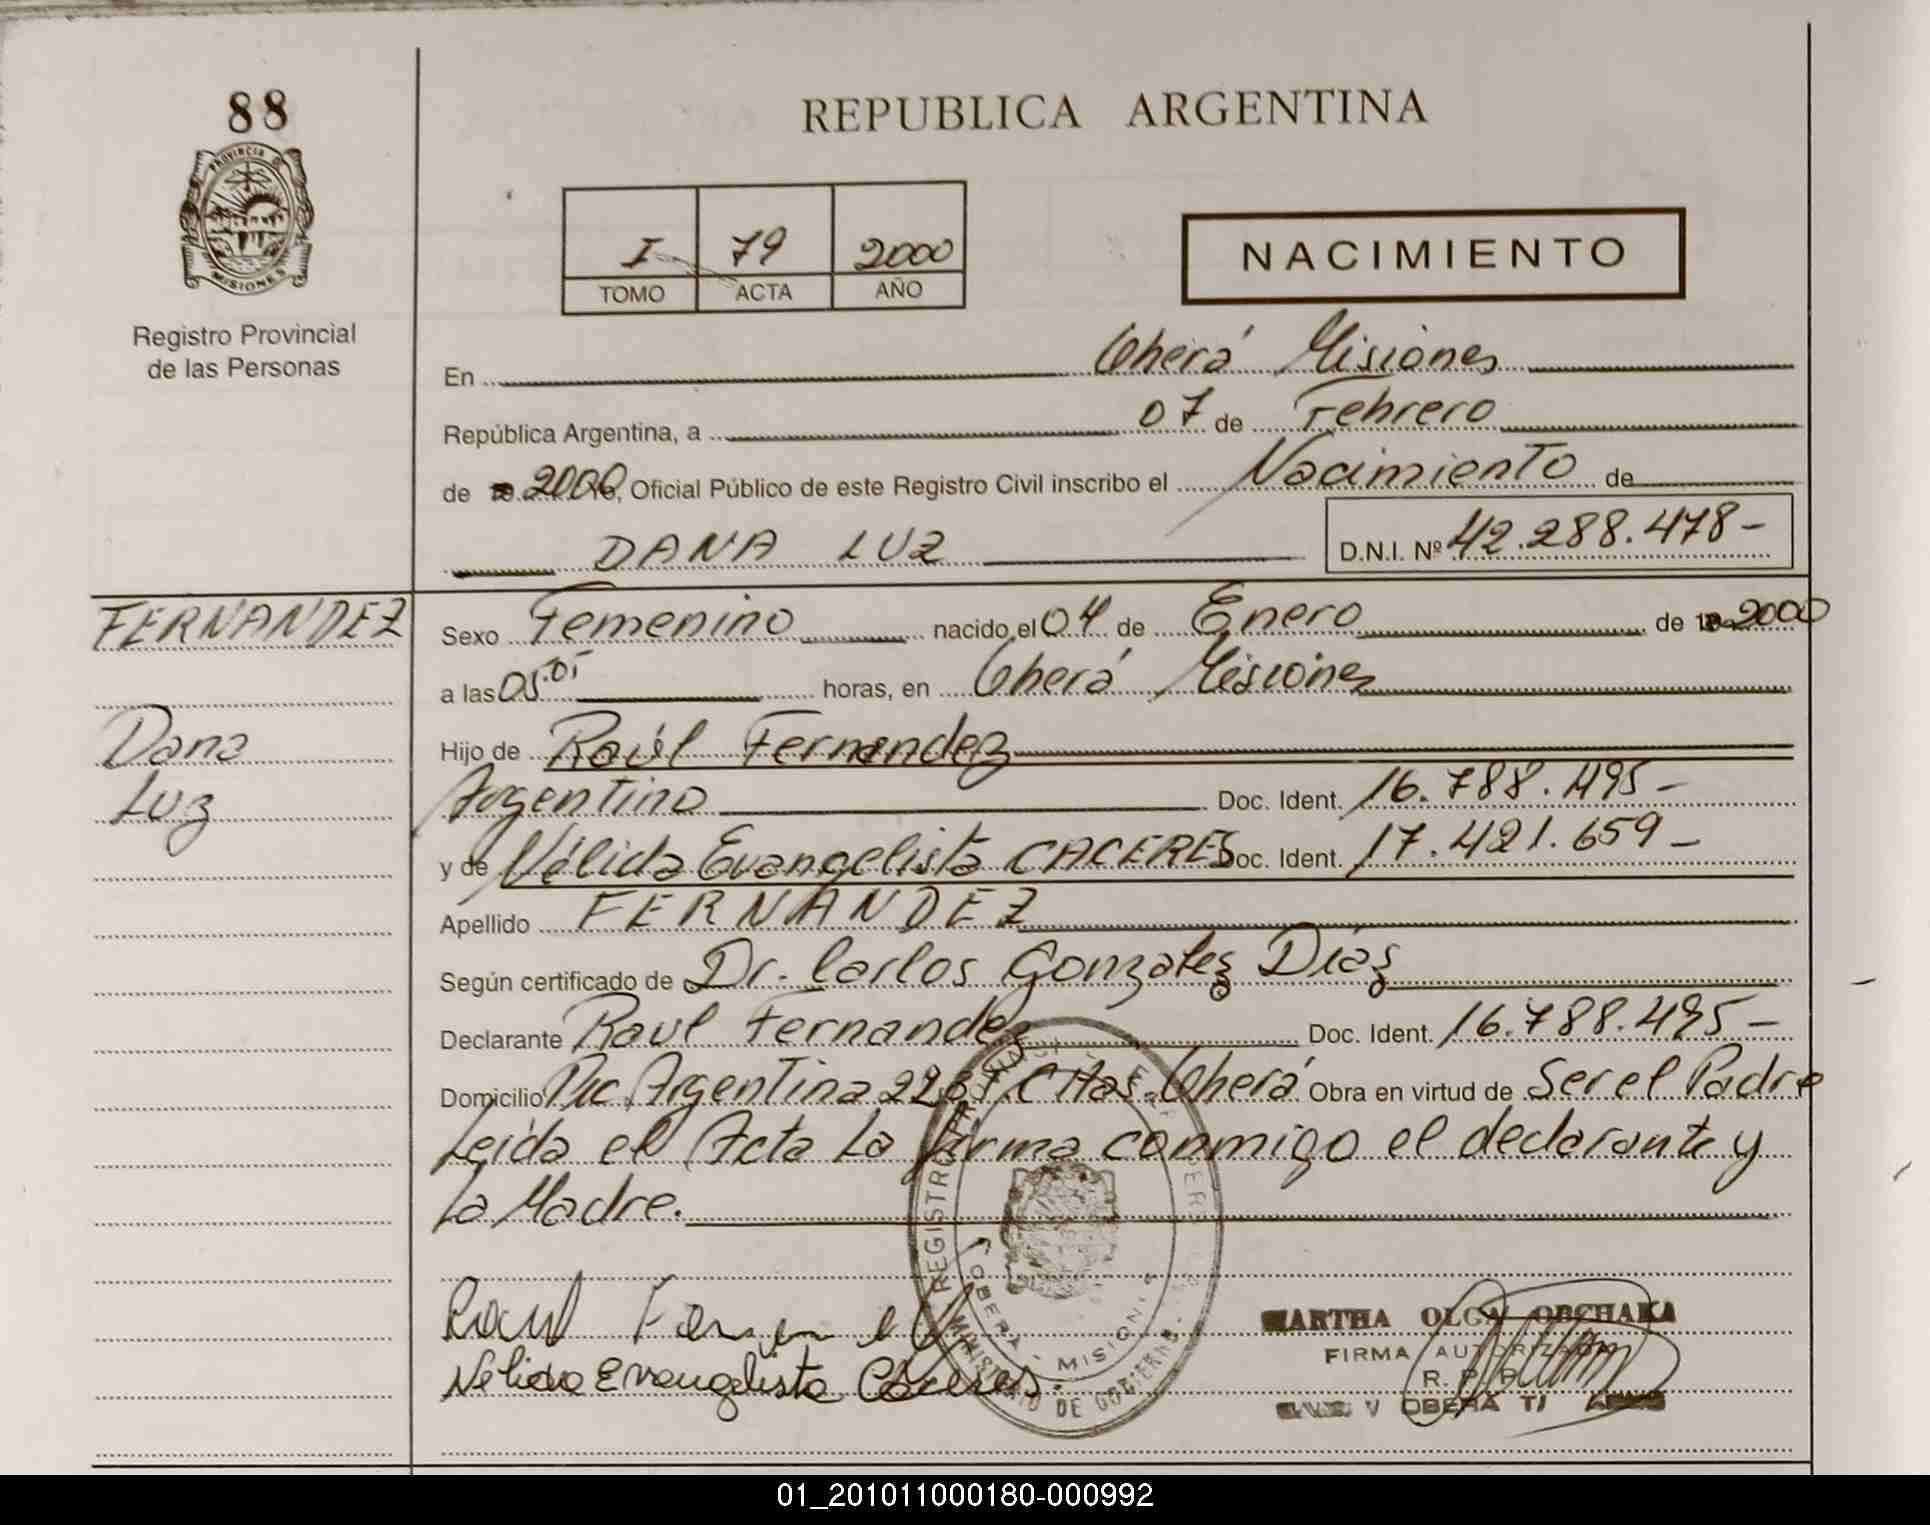 88
PROVINCIA D
MISIONES
Registro Provincial
de las Personas
REPUBLICA ARGENTINA
I 79 2000
TOMO ACTA AÑO
NACIMIENTO
En Oberá Misiones
República Argentina, a 07 de Febrero
de 2000 Yo, Oficial Público de este Registro Civil inscribo el Nacimiento de
DANA LUZ D.N.I. Nº 42.288.478-
FERNANDEZ
Dana
Luz
Sexo Femenino nacido el 04 de Enero de 2000
a las 05.05 horas, en Oberá Misiones
Hijo de Raúl Fernandez
Argentino Doc. Ident. 16.788.495-
y de Nélida Evangelista CACERES Doc. Ident. 17.421.659-
Apellido FERNANDEZ
Según certificado de Dr. Carlos Gonzalez Diaz
Declarante Raul Fernandez Doc. Ident. 16.788.495-
Domicilio Pic. Argentina Oberá Obra en virtud de Ser el Padre
Leida el Acta La firma conmigo el declarante y
La Madre.
Raul
Nelida Evangelista Caceres
REGISTRO
OBERA - MISIONES
MINISTERIO DE GOBIERNO
MARTHA OLGA OBCHAKA
FIRMA AUTORIZADA
R. P. P.
OBERA
01_201011000180-000992